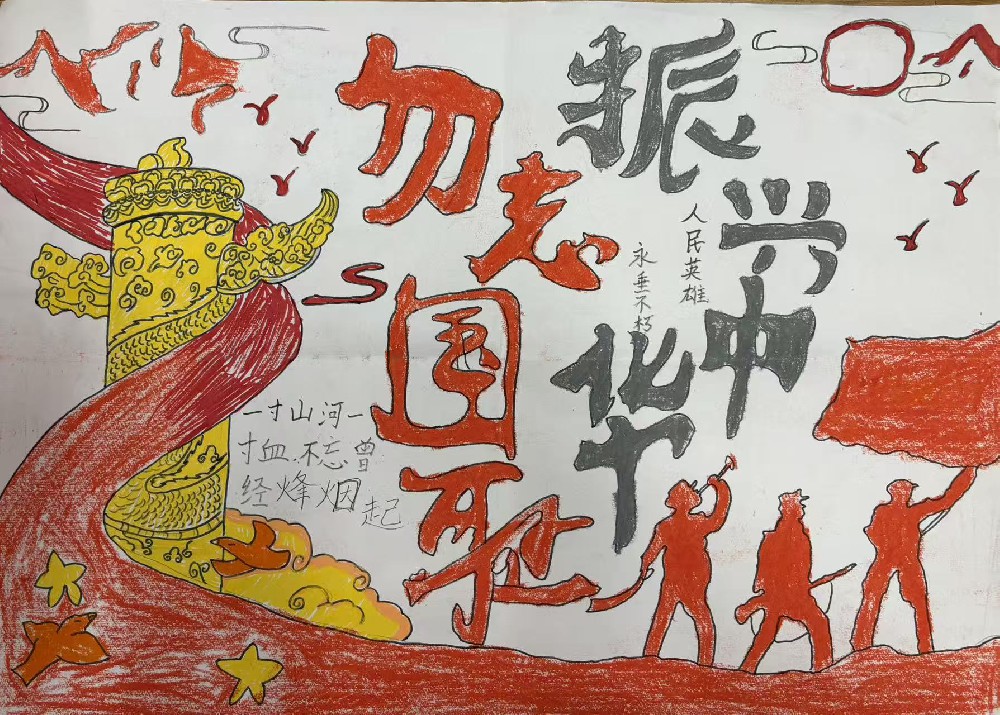 勿志国耻
振兴中华
人民英雄
永垂不朽
一寸山河一
寸血 不忘曾
经烽烟起